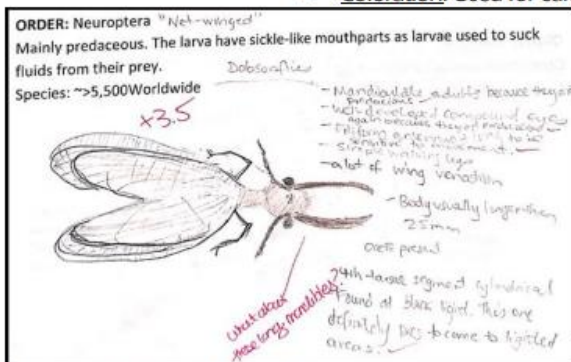 Coloration: Used for cam
ORDER: Neuroptera "Net-winged"
Mainly predaceous. The larva have sickle-like mouthparts as larvae used to suck
fluids from their prey.
Species: ~>5,500Worldwide
Dobsonflies
x3.5
- Mandibulate adults because they're
- Well-developed compound eyes
again because they're
- Filiform antennae
sensitive to movement.
- Simple walking legs
- a lot of wing venation
- Body usually longer then
25mm
present
4th tarsal segment cylindrical
Found at black light. This one
definitely likes to come to lighted
areas.
What about
these long mandibles?